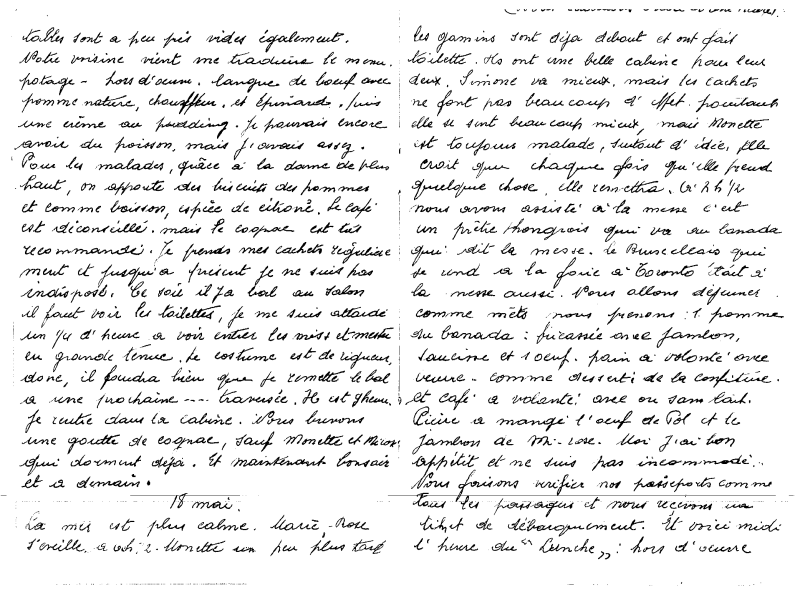 tables sont a peu près vides également.
Notre voisine vient me traduire le menu.
potage - hors d'œuvre. langue de bœuf avec
pomme nature, chouxfleur, et Epinards. Puis
une crème au pudding. Je pouvais encore
avoir du poisson, mais j'avais assez.
Pour les malades, grâce à la dame de plus
haut, on apporte des biscuits des pommes
et comme boisson, espèce de citroné. Le café
est déconseillé. mais le cognac est très
recommandé. Je prends mes cachets régulière
ment et jusqu'a présent je ne suis pas
indisposé. Ce soir il ya bal au Salon
il faut voir les toilettes, je me suis attardé
un 1/4 d'heure a voir entrer les miss et mester
en grande tenue. Le costume est de rigueur,
donc, il faudra bien que je remette le bal
a une prochaine --- traversée. Il est 9 heures.
Je rentre dans la cabine. Nous buvons
une goutte de cognac, sauf Monette et
qui dorment déjà. Et maintenant bonsoir
et a demain.
18 mai.
La mer est plus calme. Marie-Rose
s'éveille a Monette un peu plus tard
les gamins sont déja debout et ont fait
toilette. Ils ont une belle cabine pour leur
deux. Simone va mieux, mais les cachets
ne font pas beaucoup d'effet. pourtant
elle se sent beaucoup mieux, mais Monette
est toujours malade, surtout d'idée, Elle
croit que chaque fois qu'elle prend
quelque chose, elle remettra. A h 1/2
nous avons assisté a la messe c'est
un prêtre Hongrois qui va au Canada
qui dit la messe. Le Bruscellais qui
se rend a la foire à Toronto était à
la messe aussi. Nous allons déjeuner.
comme mèts nous prenons : 1 pomme
du Canada : fricassée avec Jambon,
saucisse et 1 oeuf. pain a volonté avec
beurre - comme dessert de la confiture.
et café a volonté avec ou sans lait.
Pierre a mangé l'oeuf de Pol et le
jambon de M-rose. Moi J'ai bon
appétit et ne suis pas incommodé..
Nous faisons vérifier nos passeports comme
tous les passagers et nous recevons un
ticket de débarquement. Et voici midi
l'heure du "Lunche" : hors d'oeuvre